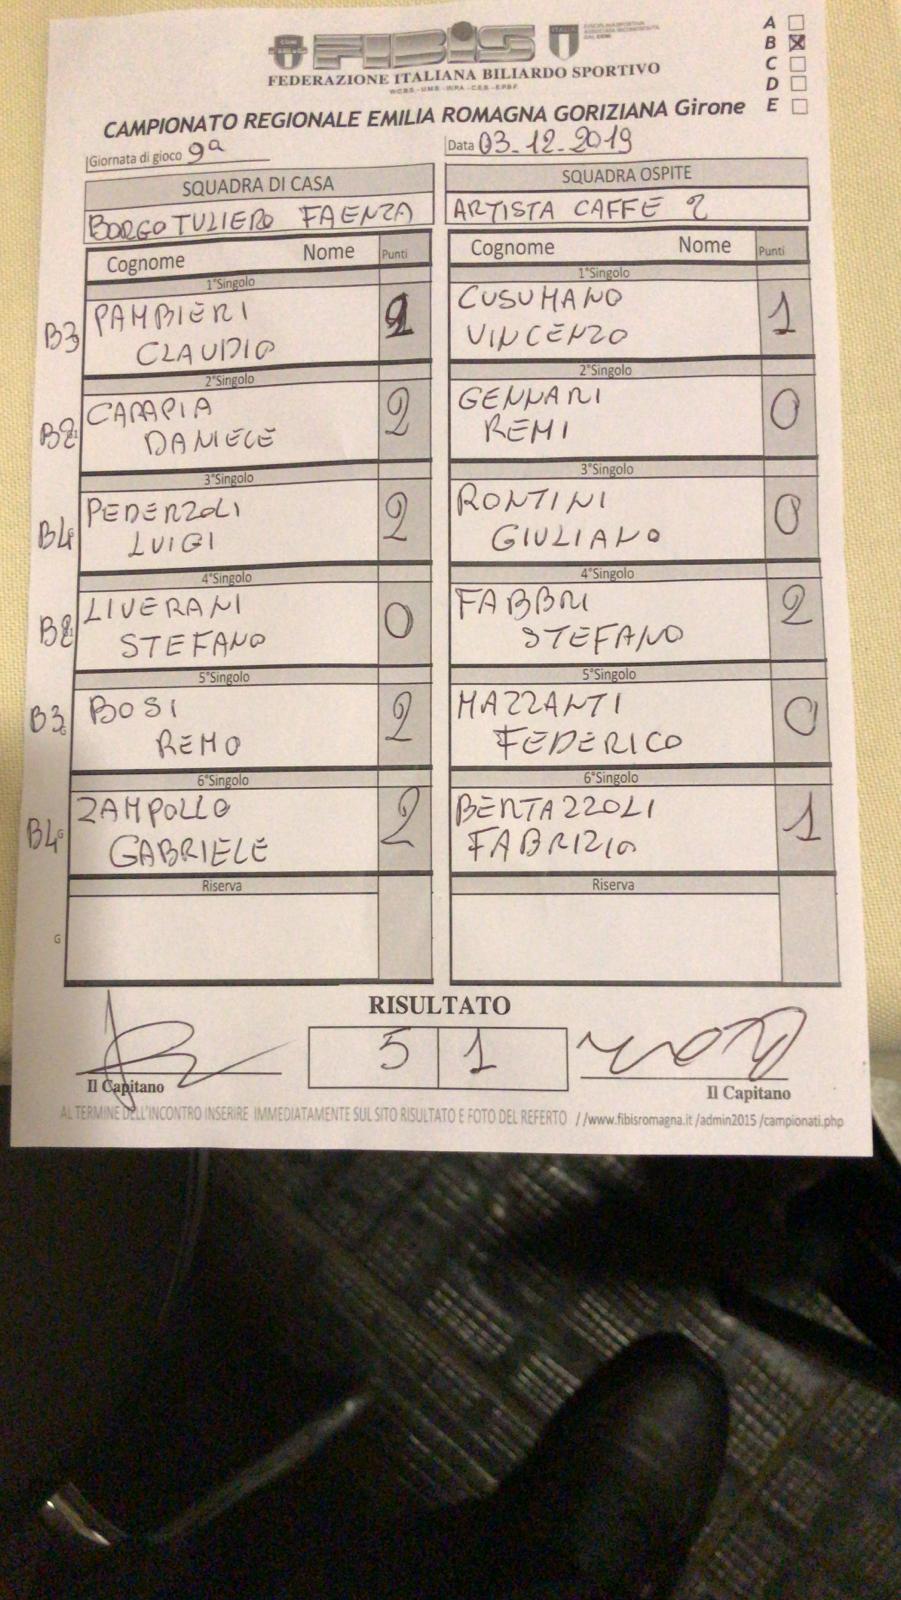 FIBIS
FEDERAZIONE ITALIANA BILIARDO SPORTIVO
A
B
C
D
E
CAMPIONATO REGIONALE EMILIA ROMAGNA GORIZIANA Girone
Giornata di gioco 9ª
Data 03-12-2019
SQUADRA DI CASA
SQUADRA OSPITE
BORGO TULIERO FAENZA
ARTISTA CAFFE 2
Cognome Nome Punti
Cognome Nome Punti
1°Singolo
1°Singolo
B3 PAMBIERI
CLAUDIO
2
CUSUMANO
VINCENZO
1
2°Singolo
2°Singolo
B2 CARAPIA
DANIELE
2
GENNARI
REMI
0
3°Singolo
3°Singolo
B4 PEDERZOLI
LUIGI
2
RONTINI
GIULIANO
0
4°Singolo
4°Singolo
B2 LIVERANI
STEFANO
0
FABBRI
STEFANO
2
5°Singolo
5°Singolo
B3 BOSI
REMO
2
MAZZANTI
FEDERICO
0
6°Singolo
6°Singolo
B4 ZAMPOLLO
GABRIELE
2
BERTAZZOLI
FABRIZIO
1
Riserva
Riserva
G
RISULTATO
5 1
Il Capitano
Il Capitano
AL TERMINE DELL'INCONTRO INSERIRE IMMEDIATAMENTE SUL SITO RISULTATO E FOTO DEL REFERTO //www.fibisromagna.it /admin2015 /campionati.php